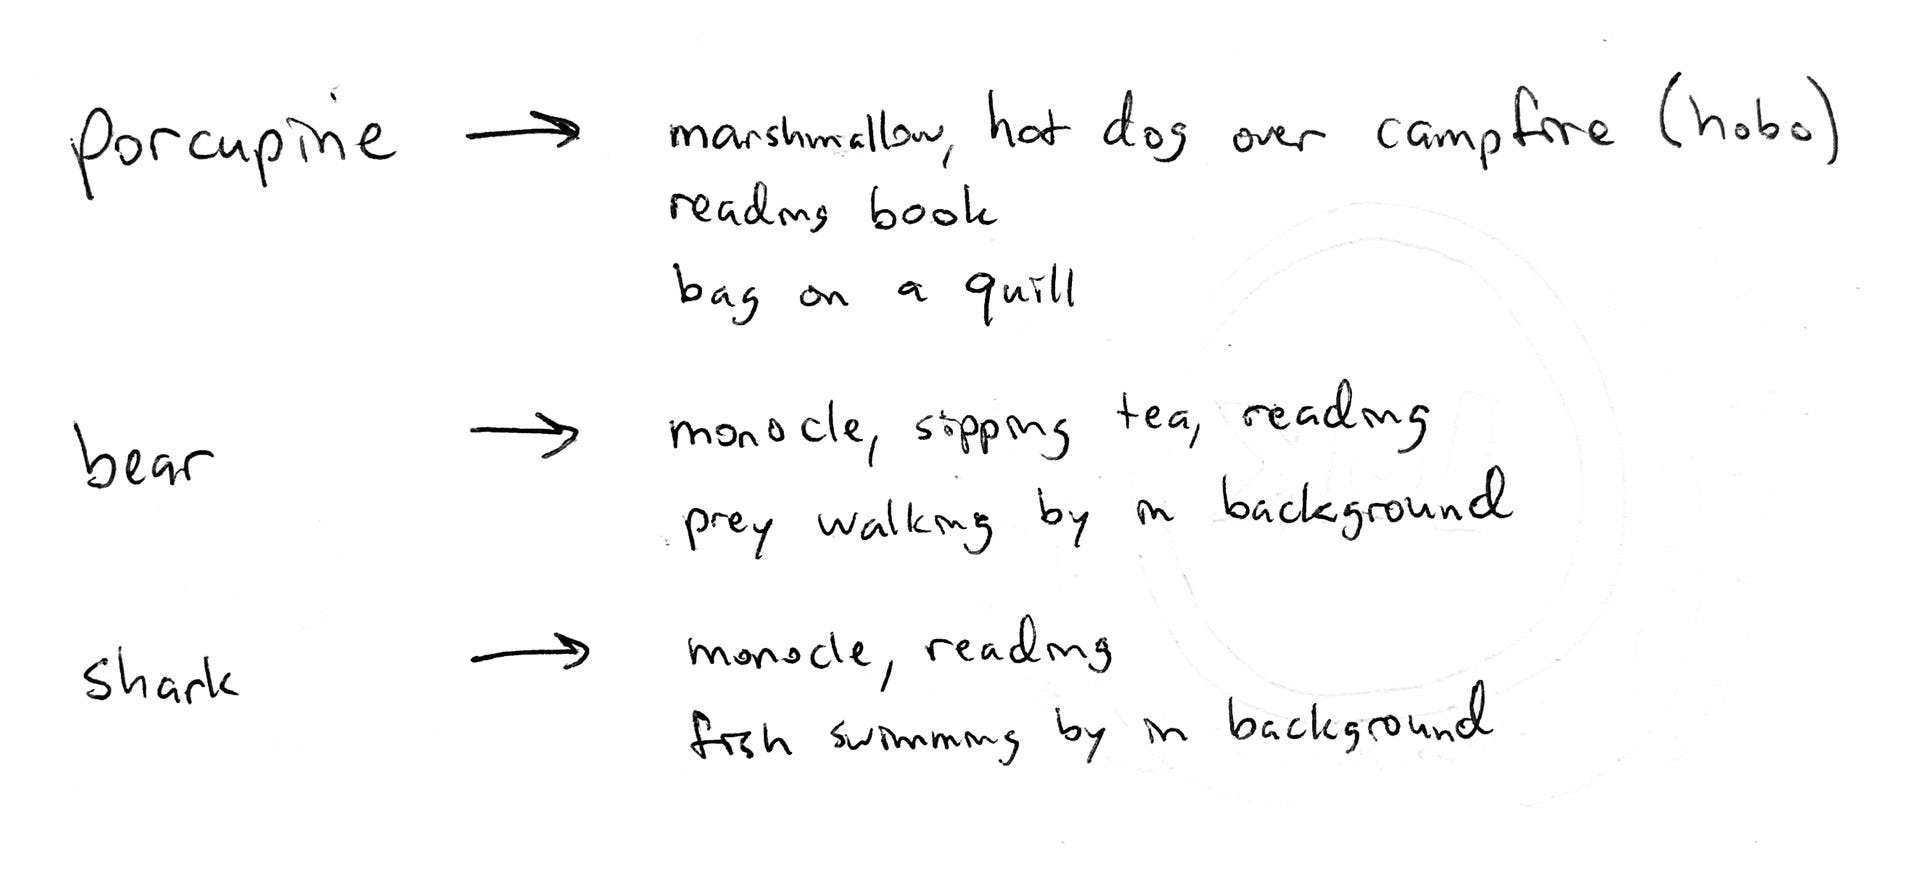 porcupine → marshmallow, hot dog over campfire (hobo)
reading book
bag on a quill
bear → monocle, sipping tea, reading
prey walking by in background
shark → monocle, reading
fish swimming by in background